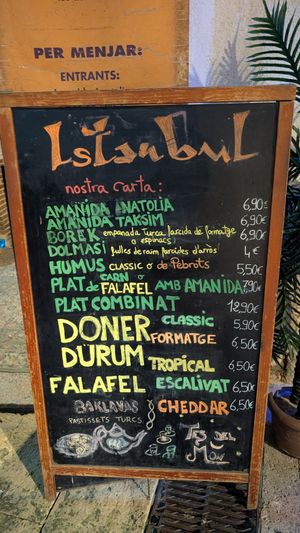 PER MENJAR:
ENTRANTS:
Istanbul
nostra carta:
AMANIDA ANATOLIA 6,90€
AMANIDA TAKSIM 6,90€
BOREK empanada turca farcida de formatge o espinacs 6,90€
DOLMAS fulles de raim farcides d'arròs 4€
HUMUS CLASSIC o de Pebrots 5,50€
PLAT de CARN o FALAFEL AMB AMANIDA 7,90€
PLAT COMBINAT 12,90€
DONER CLASSIC 5,90€
DURUM FORMATGE 6,50€
TROPICAL 6,50€
FALAFEL ESCALIVAT 6,50€
BAKLAVAS CHEDDAR 6,50€
PASTISSETS TURCS
TÈS DEL MÓN